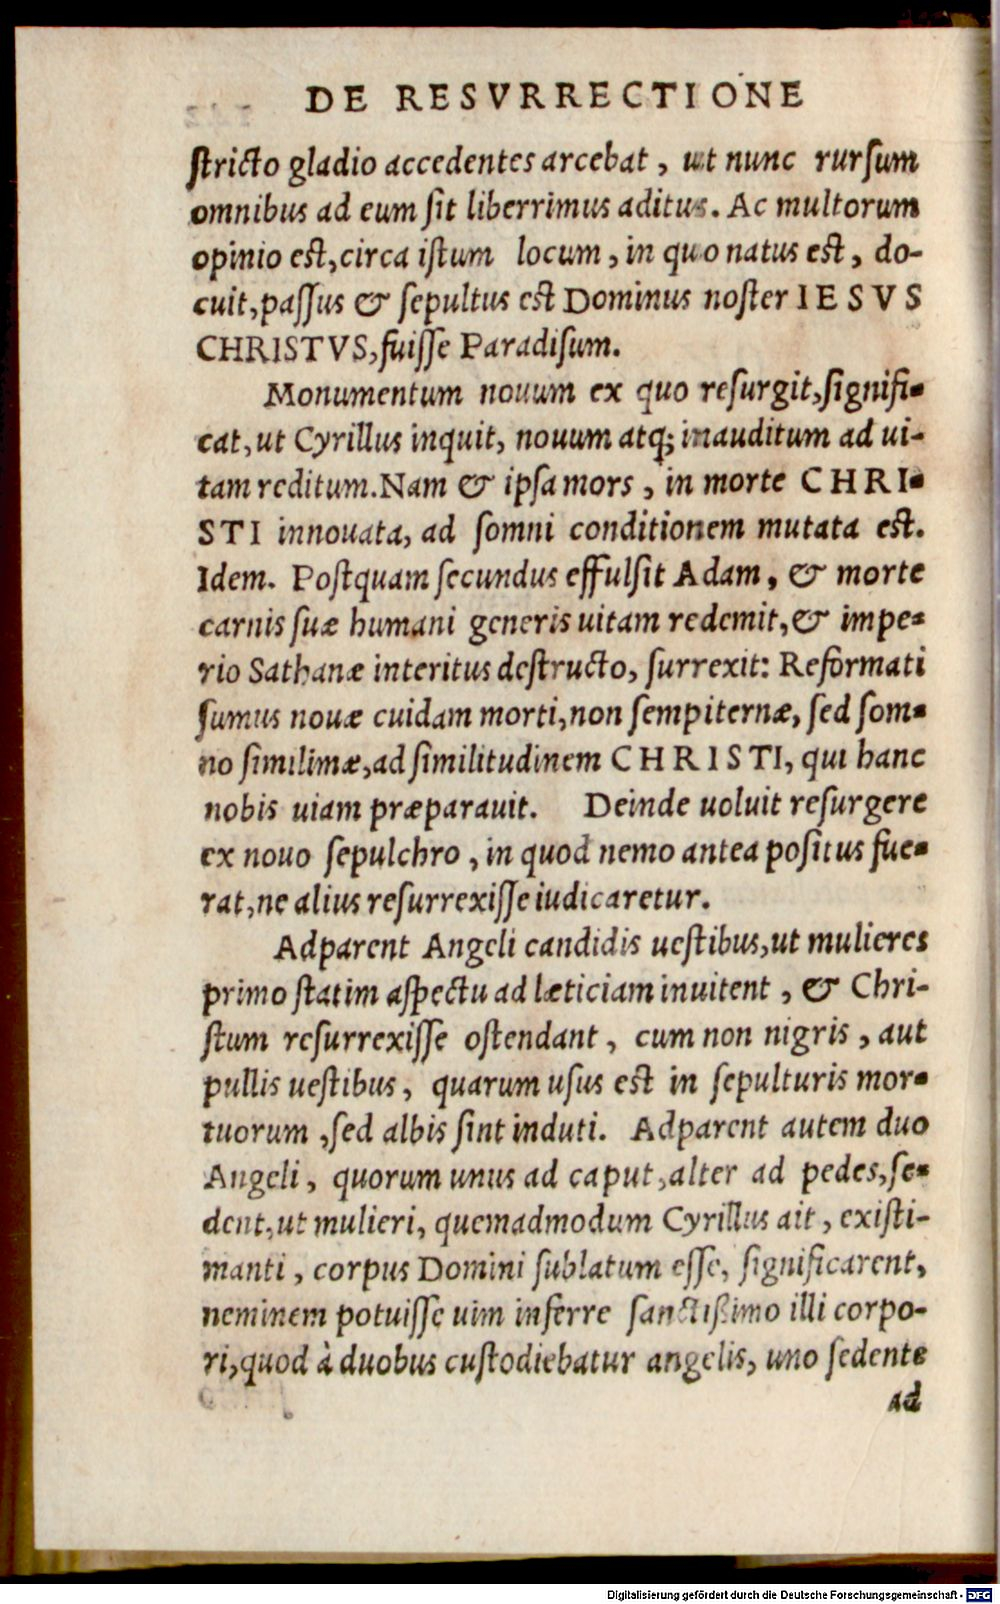 DE RESVRRECTIONE
stricto gladio accedentes arcebat, ut nunc rursum
omnibus ad eum sit liberrimus aditus. Ac multorum
opinio est, circa istum locum, in quo natus est, do-
cuit, passus & sepultus est Dominus noster IESVS
CHRISTVS, fuisse Paradisum.
Monumentum nouum ex quo resurgit, signifi-
cat, ut Cyrillus inquit, nouum atq; inauditum ad ui-
tam reditum. Nam & ipsa mors, in morte CHRI-
STI innouata, ad somni conditionem mutata est.
Idem. Postquam secundus effulsit Adam, & morte
carnis suæ humani generis uitam redemit, & impe-
rio Sathanæ interitus destructo, surrexit: Reformati
sumus nouæ cuidam morti, non sempiternæ, sed som-
no similimæ, ad similitudinem CHRISTI, qui hanc
nobis uiam præparauit. Deinde uoluit resurgere
ex nouo sepulchro, in quod nemo antea positus fue-
rat, ne alius resurrexisse iudicaretur.
Adparent Angeli candidis uestibus, ut mulieres
primo statim aspectu ad læticiam inuitent, & Chri-
stum resurrexisse ostendant, cum non nigris, aut
pullis uestibus, quarum usus est in sepulturis mor-
tuorum, sed albis sint induti. Adparent autem duo
Angeli, quorum unus ad caput, alter ad pedes, se-
dent, ut mulieri, quemadmodum Cyrillus ait, existi-
manti, corpus Domini sublatum esse, significarent,
neminem potuisse uim inferre sanctißimo illi corpo-
ri, quod à duobus custodiebatur angelis, uno sedente
ad
Digitalisierung gefördert durch die Deutsche Forschungsgemeinschaft - DFG